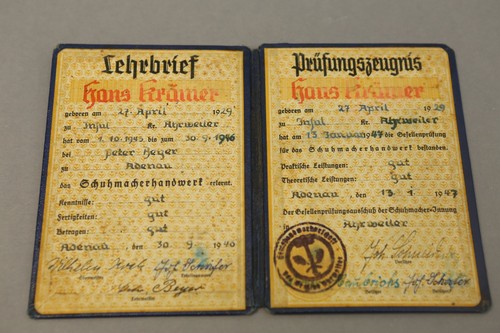 Lehrbrief
Hans Krämer
geboren am 27. April 1929
zu Insul Kr. Ahrweiler
hat vom 1.10.1943 bis zum 30.9.1946
bei Peter Beyer
zu Adenau
das Schuhmacherhandwerk erlernt.
Kenntnisse: gut
Fertigkeiten: gut
Betragen: gut
Adenau, den 30. 9. 1946
Beyer
Prüfungszeugnis
Hans Krämer
geboren am 27 April 1929
zu Insul Kr. Ahrweiler
hat am 13 Januar 1947 die Gesellenprüfung
für das Schuhmacherhandwerk bestanden.
Praktische Leistungen: gut
Theoretische Leistungen: gut
Adenau, den 13. 1. 1947
Der Gesellenprüfungsausschuß der Schuhmacher-Innung
in Ahrweiler